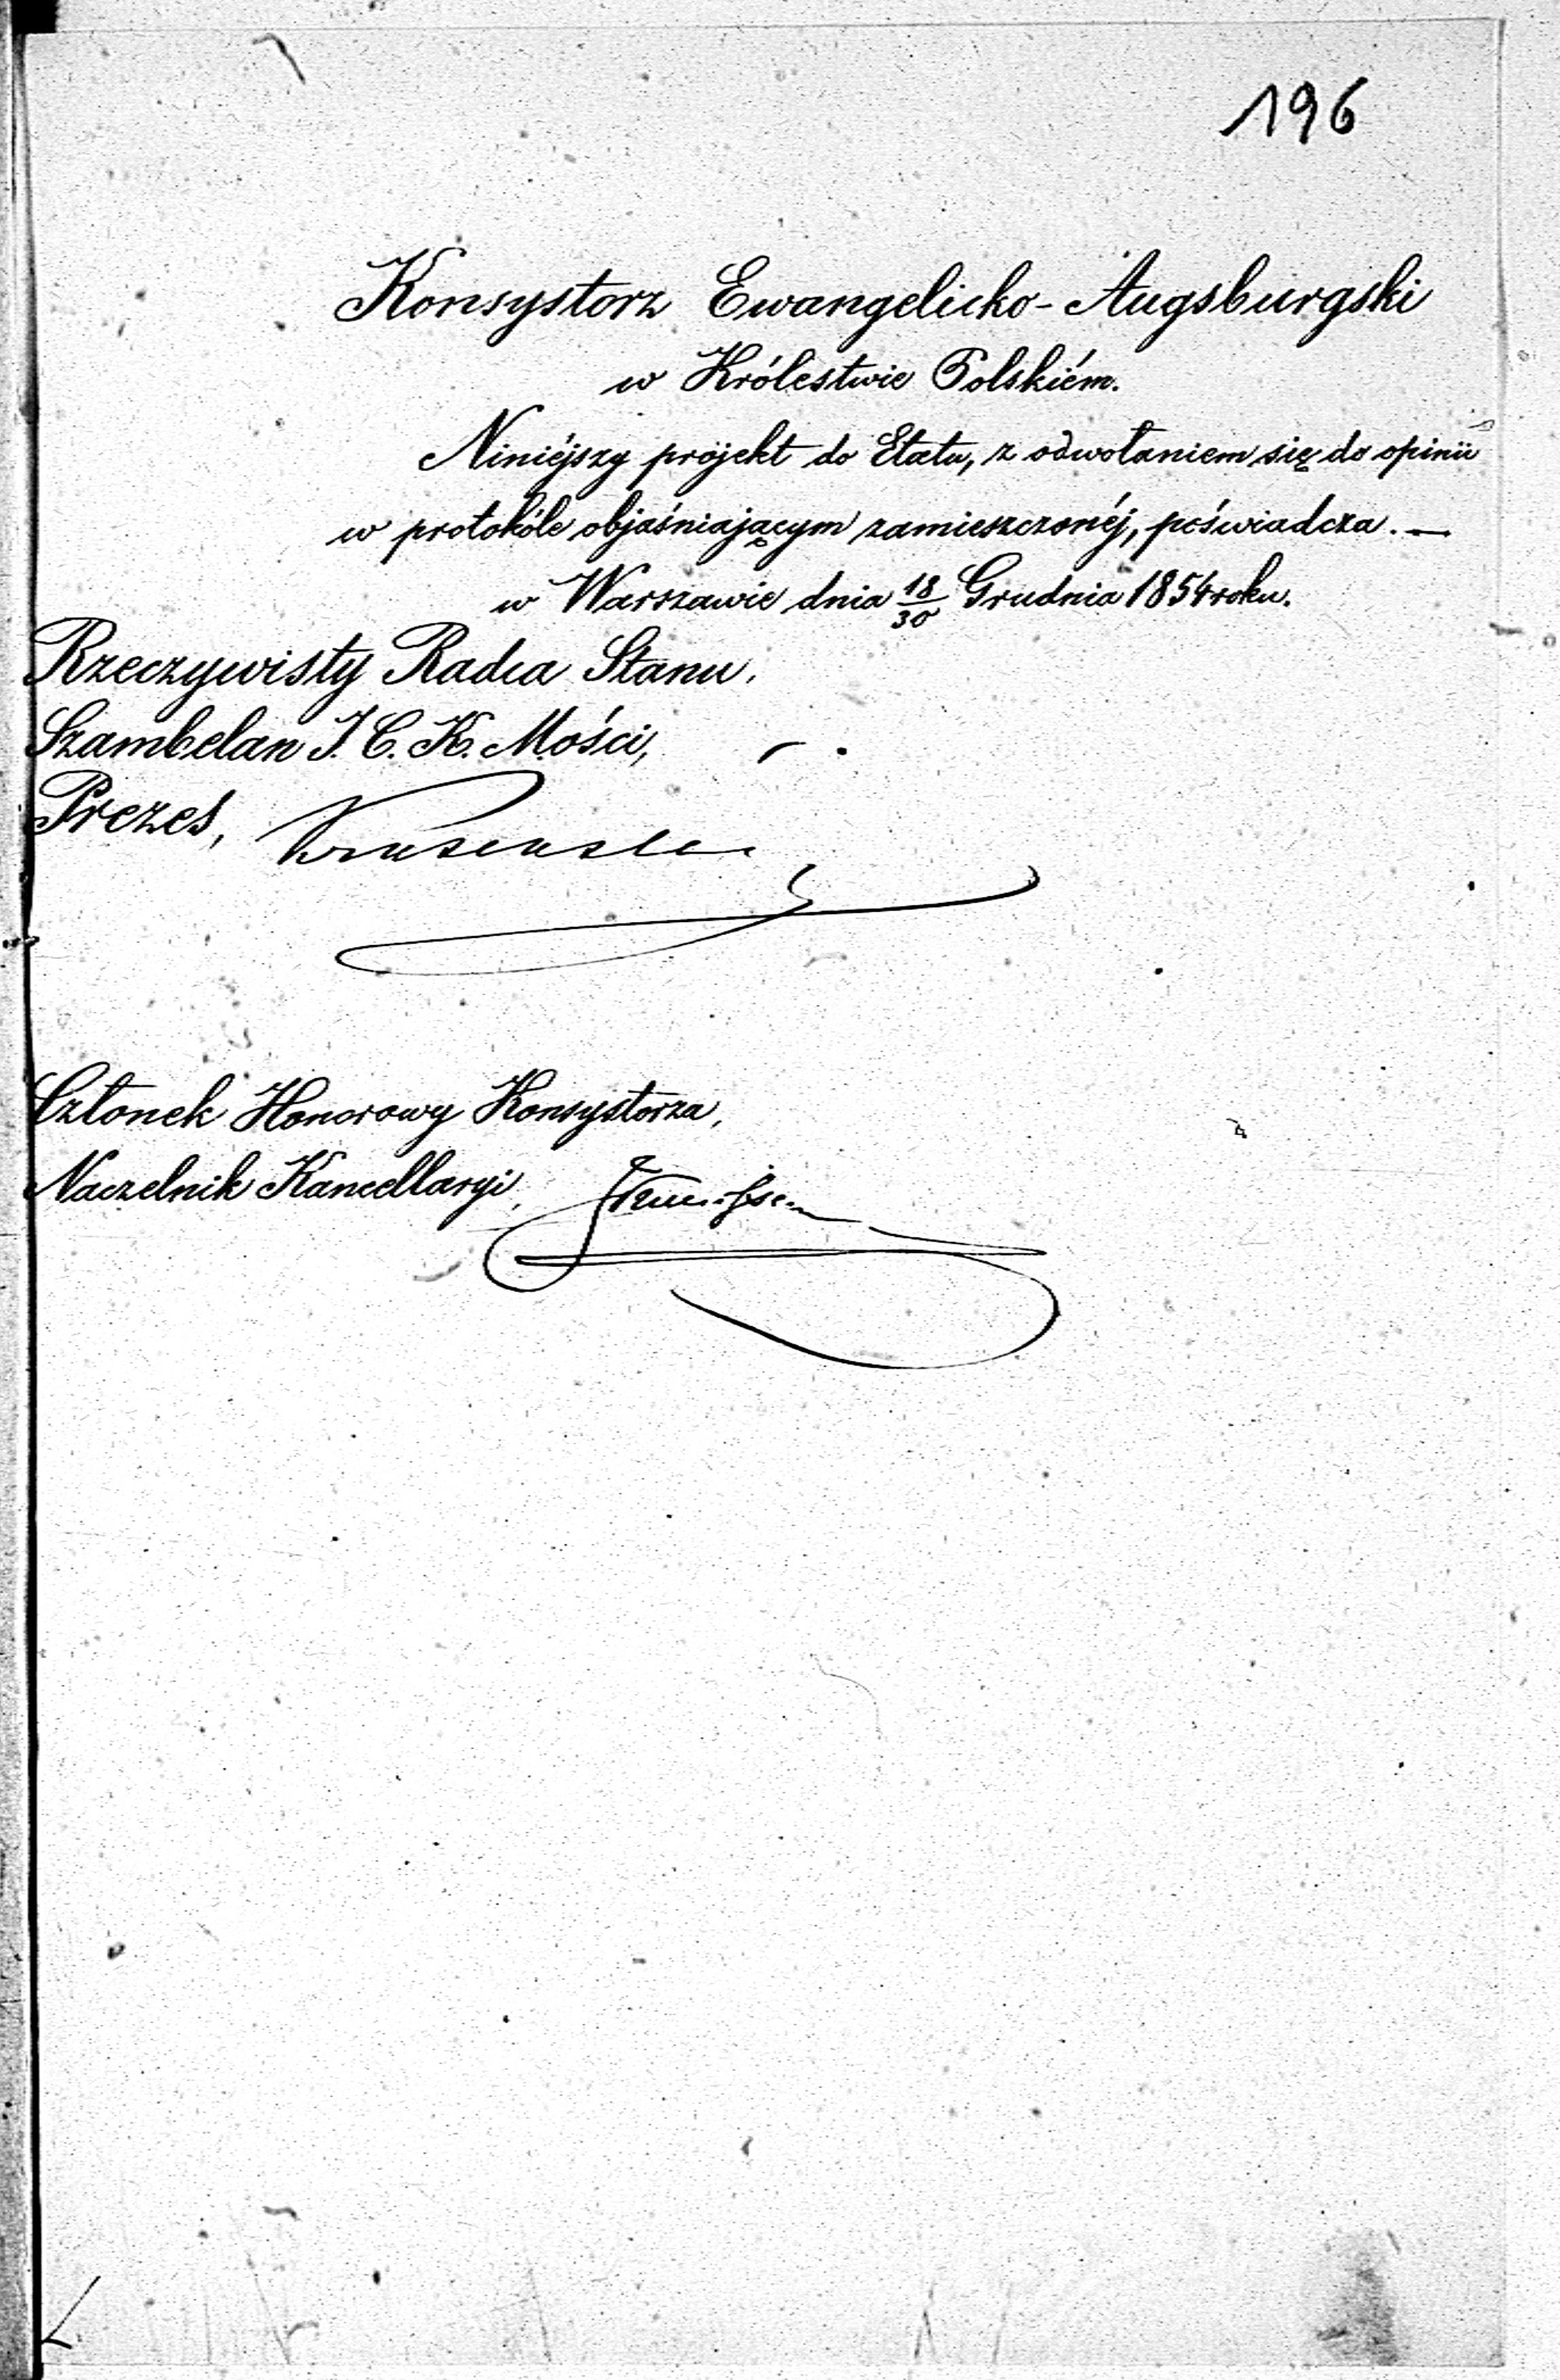 196
Konsystorz Ewangelicko-Augsburgski
w Królestwie Polskiém.
Niniéjszy projekt do Etatu, z odwołaniem się do opinii
w protokóle objaśniającym zamieszczonéj, poświadcza. —
w Warszawie dnia 18/30 Grudnia 1854 roku.
Rzeczywisty Radca Stanu,
Szambelan J. C. K. Mości,
Prezes,
Członek Honorowy Konsystorza,
Naczelnik Kancellaryi,